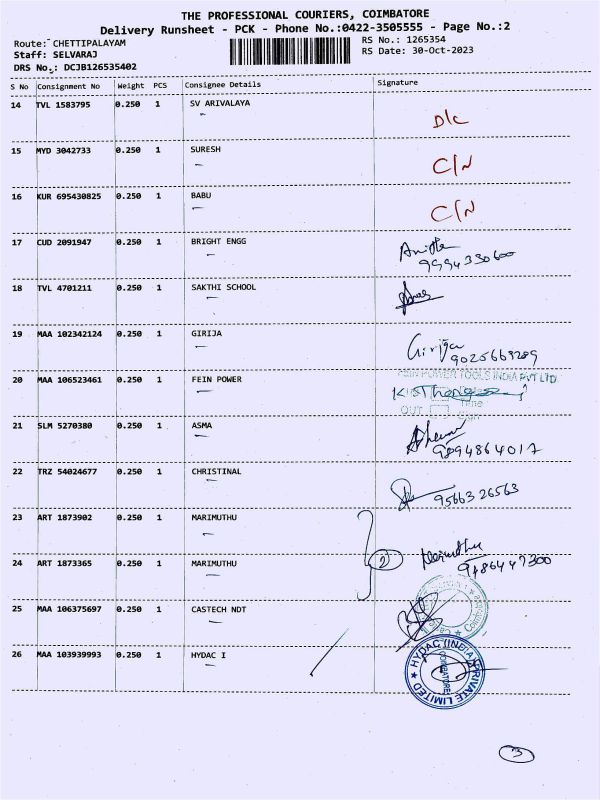 THE PROFESSIONAL COURIERS, COIMBATORE
Delivery Runsheet - PCK - Phone No.:0422-3505555 - Page No.:2
Route: CHETTIPALAYAM
RS No.: 1265354
Staff: SELVARAJ
RS Date: 30-Oct-2023
DRS No.: DCJB126535402
S No Consignment No Weight PCS Consignee Details Signature
14 TVL 1583795 0.250 1 SV ARIVALAYA
D/c
15 MYD 3042733 0.250 1 SURESH
C/N
16 KUR 695430825 0.250 1 BABU
C/N
17 CUD 2091947 0.250 1 BRIGHT ENGG
9994330600
18 TVL 4701211 0.250 1 SAKTHI SCHOOL
19 MAA 102342124 0.250 1 GIRIJA
Girija
9025663289
20 MAA 106523461 0.250 1 FEIN POWER
FEIN POWER TOOLS INDIA PVT LTD
Time
OUT
21 SLM 5270380 0.250 1 ASMA
9894864017
22 TRZ 54024677 0.250 1 CHRISTINAL
9566326563
23 ART 1873902 0.250 1 MARIMUTHU
24 ART 1873365 0.250 1 MARIMUTHU
2
Marimuthu
9486447300
25 MAA 106375697 0.250 1 CASTECH NDT
26 MAA 103939993 0.250 1 HYDAC I
HYDAC (INDIA) PRIVATE LIMITED
COIMBATORE
3